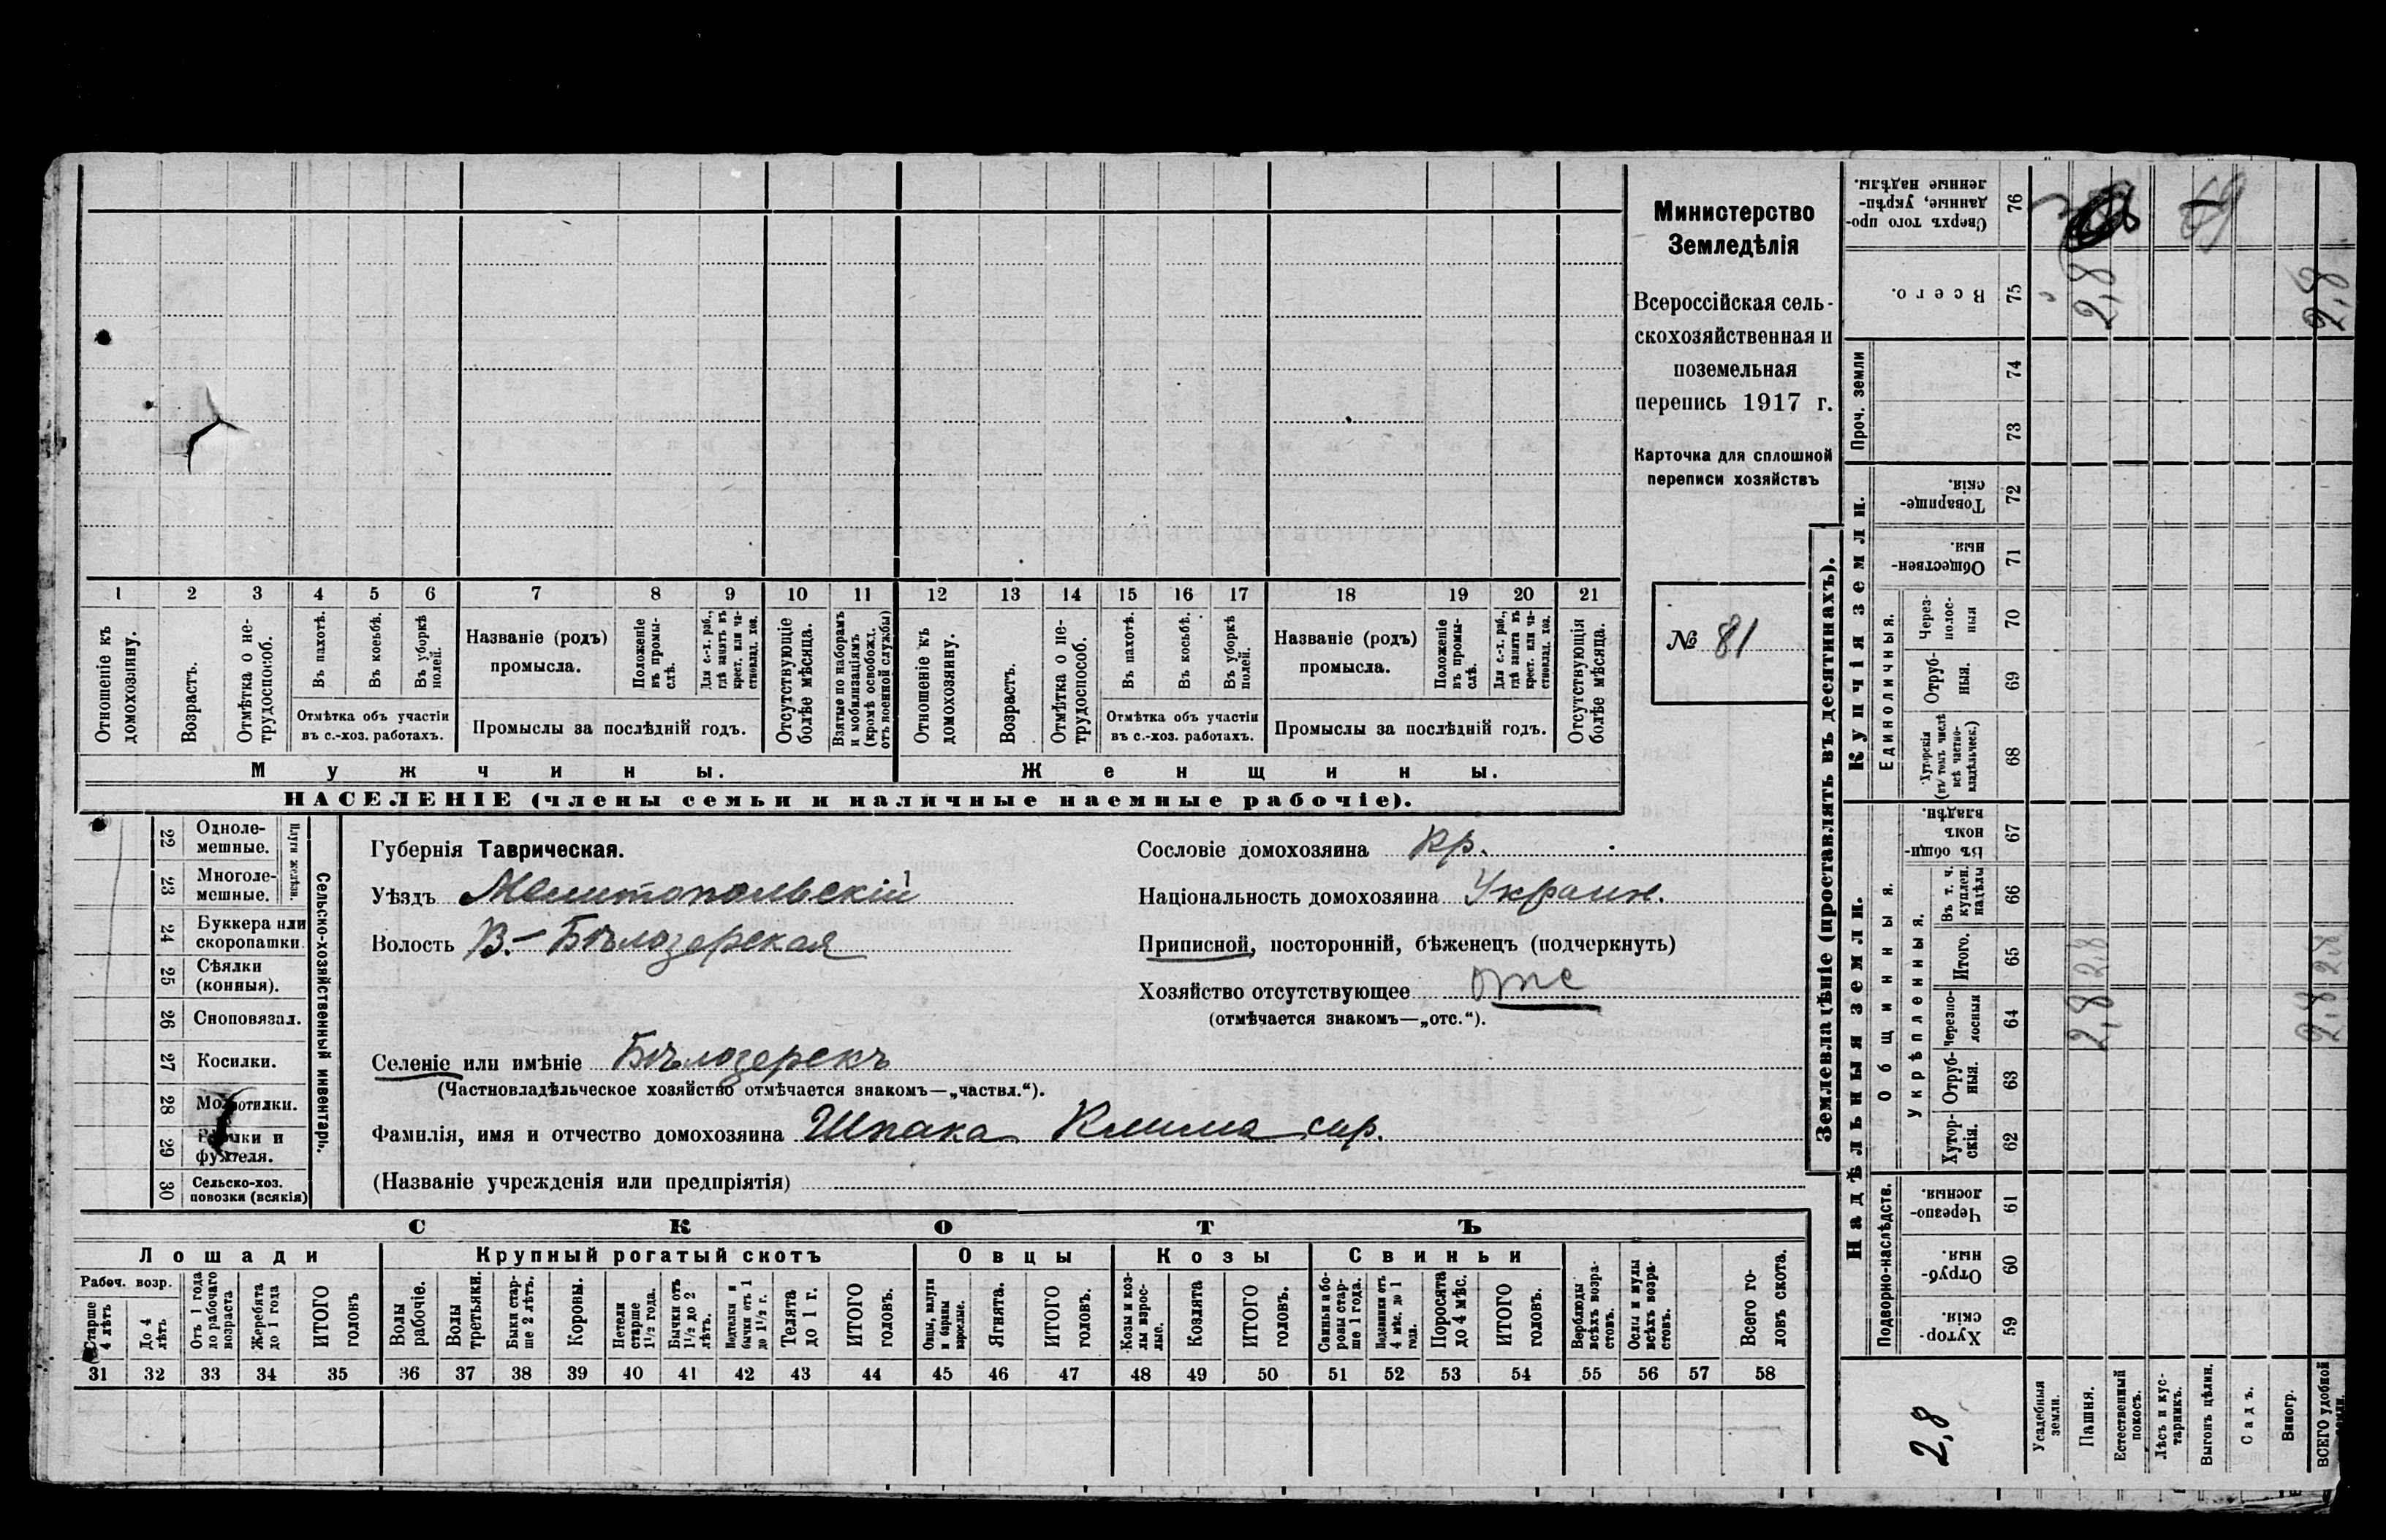 Министерство
Земледѣлія
Всероссійская сель-
скохозяйственная и
поземельная
перепись 1917 г.
Карточка для сплошной
переписи хозяйствъ
№ 81
1 2 3 4 5 6 7 8 9 10 11 12 13 14 15 16 17 18 19 20 21
Отношеніе къ домохозяину.
Возрастъ.
Отмѣтка о не-трудоспособ.
Въ пахотѣ.
Въ косьбѣ.
Въ уборкѣ полей.
Отмѣтка объ участіи
въ с.-хоз. работахъ.
Названіе (родъ)
промысла.
Положеніе въ промы-слѣ.
Для с.-х. раб., гдѣ занятъ въ крест. или ча-стновлад. хоз.
Промыслы за послѣдній годъ.
Отсутствующіе болѣе мѣсяца.
Взятые по наборамъ и мобилизаціямъ (кромѣ освобожд. отъ военной службы)
Отношеніе къ домохозяину.
Возрастъ.
Отмѣтка о не-трудоспособ.
Въ пахотѣ.
Въ косьбѣ.
Въ уборкѣ полей.
Отмѣтка объ участіи
въ с.-хоз. работахъ.
Названіе (родъ)
промысла.
Положеніе въ промы-слѣ.
Для с.-х. раб., гдѣ занята въ крест. или ча-стновлад. хоз.
Промыслы за послѣдній годъ.
Отсутствующія болѣе мѣсяца.
Мужчины.
Женщины.
НАСЕЛЕНІЕ (члены семьи и наличные наемные рабочіе).
22 Одноле-мешные.
23 Многоле-мешные.
Плуги желѣзн.
24 Буккера или скоропашки.
25 Сѣялки (конныя).
26 Сноповязал.
27 Косилки.
28 Молотилки.
29 Вѣялки и фухтеля.
30 Сельско-хоз. повозки (всякія)
Сельско-хозяйственный инвентарь.
Губернія Таврическая.
Уѣздъ Мелитопольскій
Волость В.-Бѣлозерская
Сословіе домохозяина кр.
Національность домохозяина Украин.
Приписной, посторонній, бѣженецъ (подчеркнуть)
Хозяйство отсутствующее отс
(отмѣчается знакомъ—„отс.“).
Селеніе или имѣніе Бѣлозерскъ
(Частновладѣльческое хозяйство отмѣчается знакомъ—„частвл.“).
Фамилія, имя и отчество домохозяина Шпака Клима сир.
(Названіе учрежденія или предпріятія)
СКОТЪ
Лошади
Крупный рогатый скотъ
Овцы
Козы
Свиньи
Рабоч. возр.
Старше 4 лѣтъ
До 4 лѣтъ
Отъ 1 года до рабочаго возраста
Жеребята до 1 года
ИТОГО головъ
Волы рабочіе.
Волы третьяки.
Быки стар-ше 2 лѣтъ.
Коровы.
Нетели старше 1½ года.
Бычки отъ 1½ до 2 лѣтъ.
Нетелки и бычки отъ 1 до 1½ г.
Телята до 1 г.
ИТОГО головъ.
Овцы, валухи и бараны взрослые.
Ягнята.
ИТОГО головъ.
Козы и коз-лы взрос-лые.
Козлята
ИТОГО головъ.
Свиньи и бо-ровы стар-ше 1 года.
Подсвинки отъ 4 мѣс. до 1 года.
Поросята до 4 мѣс.
ИТОГО головъ.
Верблюды всѣхъ возра-стовъ.
Ослы и мулы всѣхъ возра-стовъ.
Всего го-ловъ скота.
31 32 33 34 35 36 37 38 39 40 41 42 43 44 45 46 47 48 49 50 51 52 53 54 55 56 57 58
Землевладѣніе (проставлять въ десятинахъ).
Купчія земли.
Надѣльныя земли.
76 Сверхъ того про-данные, укрѣп-ленные надѣлы.
75 Всего. 2,8 2,8
Проч. земли
74
73
72 Товарище-скія.
71 Обществен-ныя.
Единоличныя.
70 Через-полос-ныя
69 Отруб-ныя.
68 Хуторскія (въ томъ числѣ всѣ частно-владѣльческ.)
Общинныя.
67 Въ общин-номъ владѣн.
Укрѣпленныя.
66 Въ т. ч. куплен. надѣлы
65 Итого. 2,8 2,8
64 Черезпо-лосныя 2,8 2,8
63 Отруб-ныя.
62 Хутор-скія.
Подворно-наслѣдств.
61 Черезпо-лосныя.
60 Отруб-ныя.
59 Хутор-скія.
2,8
Усадебныя земли.
Пашня.
Естественный покосъ.
Лѣсъ и кус-тарникъ.
Выгонъ цѣлин.
Садъ.
Виногр.
ВСЕГО удобной